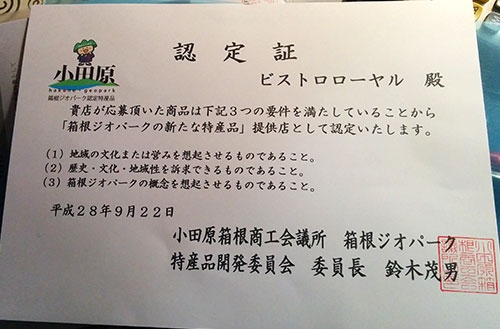 小田原
hakone geopark
箱根ジオパーク認定特産品
認定証
ビストロローヤル 殿
貴店が応募頂いた商品は下記3つの要件を満たしていることから
「箱根ジオパークの新たな特産品」提供店として認定いたします。
(1) 地域の文化または営みを想起させるものであること。
(2) 歴史・文化・地域性を訴求できるものであること。
(3) 箱根ジオパークの概念を想起させるものであること。
平成28年9月22日
小田原箱根商工会議所 箱根ジオパーク
特産品開発委員会 委員長 鈴木茂男